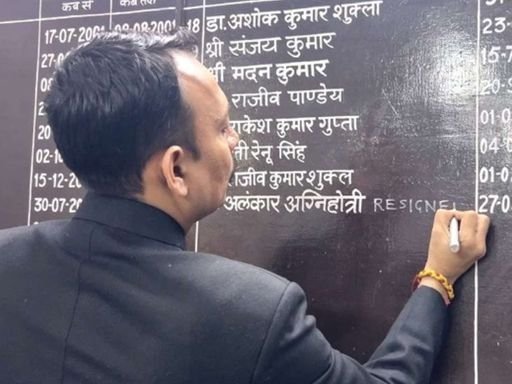 कब से कब तक
17-07-2001 08-08-2001 18 डा.अशोक कुमार शुक्ला
श्री संजय कुमार 23-
श्री मदन कुमार 15-
राजीव पाण्डेय 20-
राकेश कुमार गुप्ता 01-0
02-10 ती रेनू सिंह 04-0
15-12-20 राजीव कुमार शुक्ल 01-0
30-07-20 अलंकार अग्निहोत्री RESIGNE 27-0